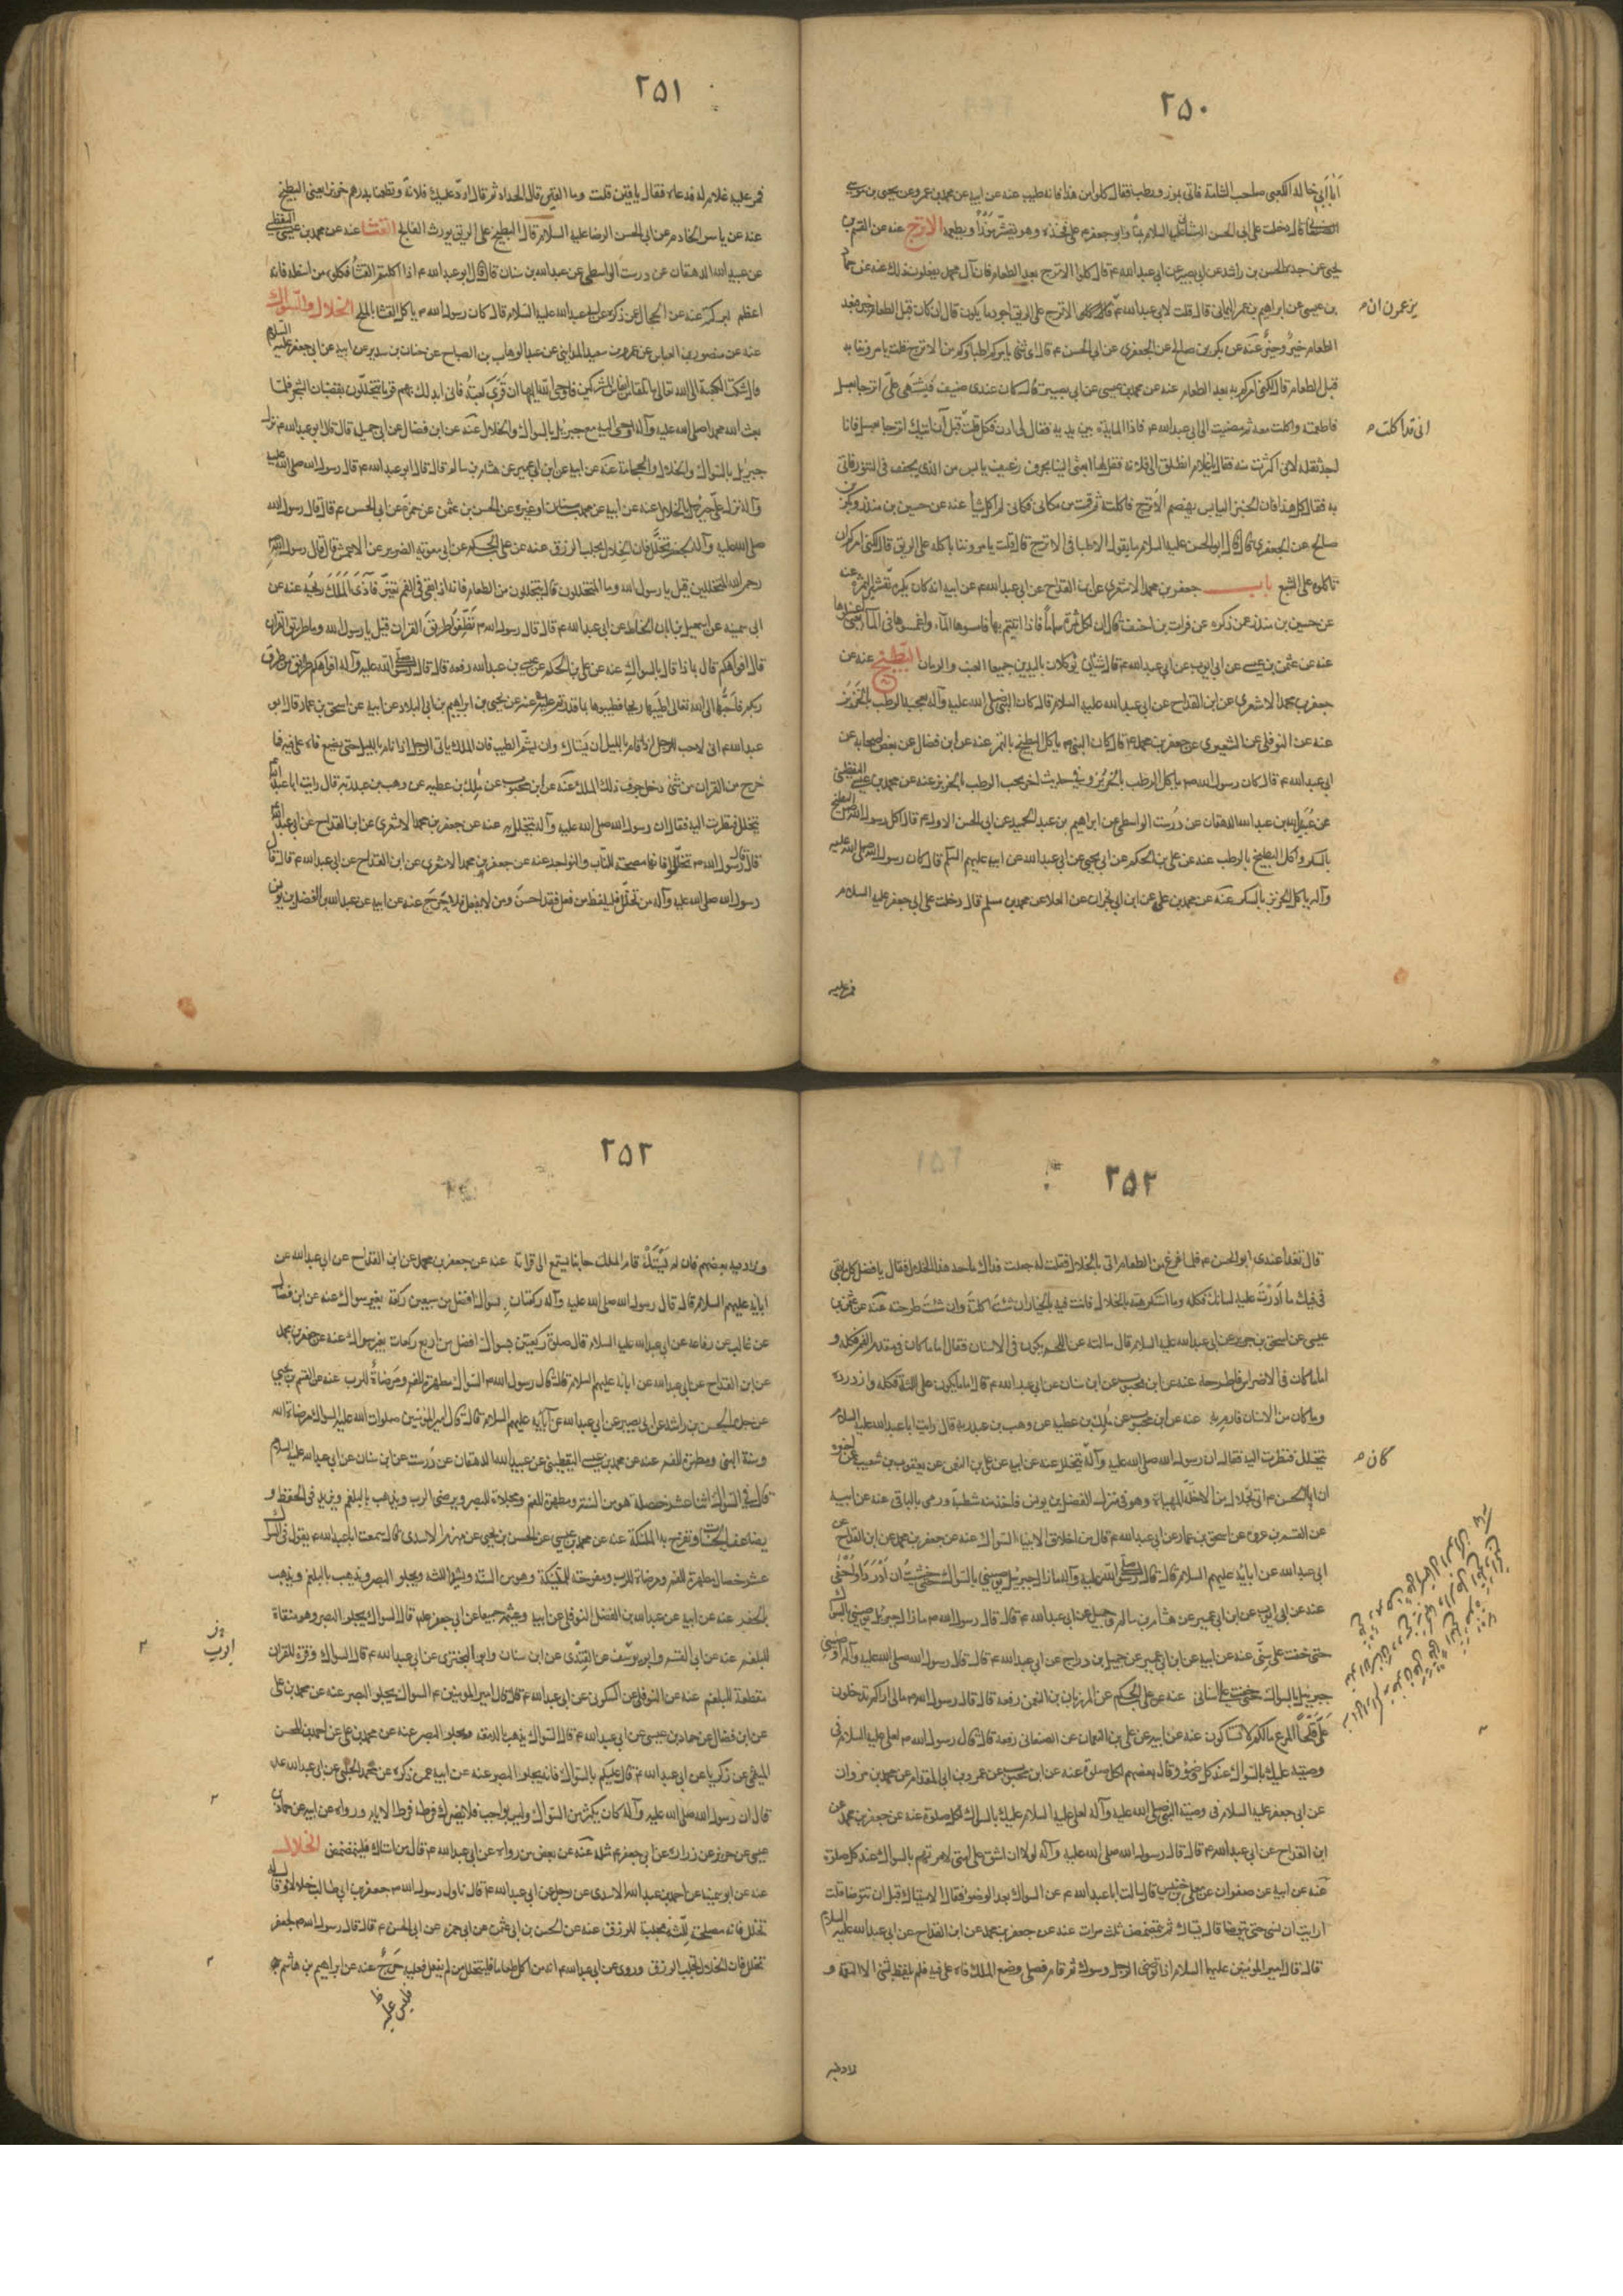 ٢٥٠
انا ابي خالد الكعبى صاحب الشامة فاتى بموز ورطب فقال كلوا من هذا فانه طيب عنه عن ابيه عن محمد بن عمرو عن يحيى بن موسى
قال دخلت على ابى الحسن الثانى عليه السلام بمنا وابو جعفر ع على فخذه وهو يقشر موزا ويطعمه الاترج عنه عن القسم بن
يحيى عن جده الحسن بن راشد عن ابى بصير عن ابى عبد الله ع قال كلوا الاترج بعد الطعام فان آل محمد يفعلون ذلك عنه عن حماد
بن عيسى عن ابراهيم بن عمر اليمانى قال قلت لابى عبد الله ع الاترج على الريق اجود ما يكون قال ان كان قبل الطعام خير فبعد
يزعمون ان
الطعام خير وخير عنه عن بكر بن صالح عن الجعفرى عن ابى الحسن ع قال اى شئ يامركم اطباؤكم من الاترج قلت يامروننا به
قبل الطعام قال لكنى امركم به بعد الطعام عنه عن محمد بن عيسى عن ابى بصير قال كان عندى ضيف فتشهى على اترجا بعسل
فاطعمته واكلت معه ثم مضيت الى ابى عبد الله ع فاذا المايدة بين يديه فقال لى ادن فكل قلت قبل ان اتيك اترجا بعسل وانا
انى قد اكلت
اجد ثقله لانى اكثرت منه فقال يا غلام انطلق الى فلانة فقل لها ابعثى الينا بحرف رغيف يابس من الذى يجفف فى التنور فاتى
به فقال كل هذا فان الخبز اليابس يهضم الاترج فاكلته ثم قمت من مكانى فكانى لم اكل شيا عنه عن حسين بن منذر وبكر بن
صالح عن الجعفرى قال قال ابو الحسن عليه السلام ما يقول الاطبا فى الاترج قال قلت يامروننا باكله على الريق قال لكنى امركم ان
تاكلوه على الشبع باب جعفر بن محمد الاشعرى عن ابن القداح عن ابى عبد الله ع عن ابيه انه كان يكره تقشير الثمرة عنه
عن حسين بن منذر عمن ذكره عن فرات بن احنف قال ان لكل ثمرة سماما فاذا اتيتم بها فامسوها الماء واغمسوها فى الماء يعنى اغسلوها
عنه عن عثمن بن عيسى عن ابى ايوب عن ابى عبد الله ع قال شيئان يوكلان باليدين جميعا العنب والرمان البطيخ عنه عن
جعفر بن محمد الاشعرى عن ابن القداح عن ابى عبد الله عليه السلام قال كان النبى صلى الله عليه وآله يعجبه الرطب بالخربز
عنه عن النوفلى عن الشعيرى عن جعفر بن محمد ع قال كان النبى ص ياكل البطيخ بالتمر عنه عن ابن فضال عن بعض اصحابه عن
ابى عبد الله ع قال كان رسول الله ص ياكل الرطب بالخربز وفى حديث اخر يحب الرطب بالخربز عنه عن محمد بن عيسى اليقطينى
عن عبيد الله بن عبد الله الدهقان عن درست الواسطى عن ابراهيم بن عبد الحميد عن ابى الحسن الاول ع قال اكل رسول الله ص البطيخ
بالسكر واكل البطيخ بالرطب عنه عن على بن الحكم عن ابى يحيى عن ابى عبد الله عن ابيه عليهم السلم قال كان رسول الله صلى الله عليه
وآله ياكل الخربز بالسكر عنه عن محمد بن على عن ابن ابى نجران عن العلا عن محمد بن مسلم قال دخلت على ابى جعفر عليه السلام
فمر عليه
٢٥١
فمر عليه غلام له فدعاه فقال يا قين قلت وما القين قال الحداد ثم قال ارد عليك فلانة وتطعمنا بدرهم خربزا يعنى البطيخ
عنه عن ياسر الخادم عن ابى الحسن الرضا عليه السلام قال البطيخ على الريق يورث الفالج القثا عنه عن محمد بن عيسى اليقطينى
عن عبيد الله الدهقان عن درست الواسطى عن عبد الله بن سنان قال قال ابو عبد الله ع اذا اكلتم القثا فكلوه من اسفله فانه
اعظم لبركته عنه عن الحجال عمن ذكره عن ابى عبد الله عليه السلام قال كان رسول الله ص ياكل القثا بالملح الخلال والسواك
عنه عن منصور بن العباس عن عمرو بن سعيد المداينى عن عبد الوهاب بن الصباح عن حنان بن سدير عن ابيه عن ابى جعفر عليه السلام
قال شكت الكعبة الى الله تعالى ما تلقا من انفاس المشركين فاوحى الله اليها ان قرى كعبة فانى ابدلك بهم قوما يتخللون بقضبان الشجر فلما
بعث الله محمدا صلى الله عليه وآله اوحى اليه مع جبريل بالسواك والخلال عنه عن ابن فضال عن ابى جميلة قال قال ابو عبد الله ع نزل
جبريل بالسواك والخلال والحجامة عنه عن ابيه عن ابن ابى عمير عن هشام بن سالم قال قال ابو عبد الله ع قال رسول الله صلى الله عليه
وآله نزل على جبريل بالخلال عنه عن ابيه عن محمد بن سنان او غيره عن الحسن بن عثمن عن حمزة عن ابى الحسن ع قال قال رسول الله
رحم الله المتخللين قيل يا رسول الله وما المتخللون قال يتخللون من الطعام فانه اذا بقى فى الفم تغير فآذى الملك ريحه عنه عن
ابى سمينه عن اسمعيل بن ابان الحناط عن ابى عبد الله ع قال قال رسول الله ص نظفوا طريق القران قيل يا رسول الله وما طريق القران
قال افواهكم قال بماذا قال بالسواك عنه عن على بن الحكم عن عيسى بن عبد الله رفعه قال قال رسول الله صلى الله عليه وآله افواهكم طريق من طرق
ربكم فاحبها الى الله تعالى اطيبها ريحا فطيبوها بما قدرتم عليه عنه عن يحيى بن ابراهيم بن ابى البلاد عن ابيه عن اسحق بن عمار قال ابو
عبد الله ع انى لاحب للرجل اذا قام بالليل ان يستاك وان يشم الطيب فان الملك ياتى الرجل اذا قام بالليل حتى يضع فاه على فيه فما
خرج من القران من شئ دخل جوف ذلك الملك عنه عن ابن محبوب عن ملك بن عطيه عن وهب بن عبد ربه قال رايت ابا عبد الله
يتخلل فنظرت اليه فقال ان رسول الله صلى الله عليه وآله يتخلل عنه عن جعفر بن محمد الاشعرى عن ابن القداح عن ابى عبد الله
قال قال رسول الله ص تخللوا فانها مصحة للناب والنواجد عنه عن جعفر بن محمد الاشعرى عن ابن القداح عن ابى عبد الله ع قال قال
رسول الله صلى الله عليه وآله من تخلل فليلفظ من فعل فقد احسن ومن لا يفعل فلا حرج عنه عن ابيه عن عبد الله بن الفضل بن يونس
٢٥٢
قال تغدا عندى ابو الحسن ع فلما فرغ من الطعام اتى بالخلال فقلت له جعلت فداك ما حد هذا الخلال فقال يا فضل كل ما بقى
فى فيك ما ادرت عليه لسانك فكله وما استكرهته بالخلال فانت فيه بالخيار ان شئت اكلته وان شئت طرحته عنه عن عثمن بن
عيسى عن اسحق بن جرير عن ابى عبد الله عليه السلام قال سالته عن اللحم يكون فى الاسنان فقال اما ما كان فى مقدم الفم فكله و
اما ما كان فى الاضراس فاطرحه عنه عن ابن محبوب عن ابن سنان عن ابى عبد الله ع قال اما ما يكون على اللثة فكله وازدرده
وما كان من الاسنان فارم به عنه عن ابن محبوب عن ملك بن عطيه عن وهب بن عبد ربه قال رايت ابا عبد الله عليه السلام
يتخلل فنظرت اليه فقال ان رسول الله صلى الله عليه وآله يتخلل عنه عن ابيه عن على بن النعمن عن يعقوب بن شعيب عمن اخبره
كان
ان ابا الحسن ع اتى بخلال من الاخلة المهياة وهو فى منزل الفضل بن يونس فاخذ منه شظية ورمى بالباقى عنه عن ابيه
عن القسم بن عروه عن اسحق بن عمار عن ابى عبد الله ع قال من اخلاق الانبيا السواك عنه عن جعفر بن محمد عن ابن القداح عن
ابى عبد الله عن ابائه عليهم السلام قال قال رسول الله صلى الله عليه وآله ما زال جبريل يوصينى بالسواك حتى خشيت ان ادرد او احفى
حتى خفت على سنى عنه عن ابيه عن ابن ابى عمير عن جميل بن دراج عن ابى عبد الله ع قال قال رسول الله صلى الله عليه وآله اوصانى
جبريل بالسواك حتى خفت على اسنانى عنه عن على بن الحكم عن المرزبان بن النعمن رفعه قال قال رسول الله ص ما لى اراكم تدخلون
على قلحا مرغا ما لكم لا تستاكون عنه عن ابيه عن على بن النعمان عن الصنعانى رفعه قال قال رسول الله ص لعلى عليه السلام فى
وصيته عليك بالسواك عند كل وضوء وقال بعضهم لكل صلوة عنه عن ابن محبوب عن عمرو بن ابى المقدام عن محمد بن مروان
عن ابى جعفر عليه السلام فى وصية النبى صلى الله عليه وآله لعلى عليه السلام عليك بالسواك لكل صلوة عنه عن جعفر بن محمد عن
ابن القداح عن ابى عبد الله ع قال قال رسول الله صلى الله عليه وآله لولا ان اشق على امتى لامرتهم بالسواك عند كل صلوة
عنه عن ابيه عن صفوان عن معلى بن خنيس قال سالت ابا عبد الله ع عن السواك بعد الوضوء فقال الاستياك قبل ان تتوضا قلت
ارايت ان نسى حتى يتوضا قال يستاك ثم يتمضمض ثلث مرات عنه عن جعفر بن محمد عن ابن القداح عن ابى عبد الله عليه السلام
قال قال امير المومنين عليه السلام اذا توضى الرجل وسوك ثم قام فصلى وضع الملك فاه على فيه فلم يلفظ شئ الا التقمه و
٢٥٣
وزاد فيه بعضهم فان لم يستك قام الملك جانبا يستمع الى قراته عنه عن جعفر بن محمد عن ابن القداح عن ابى عبد الله عن
ابايه عليهم السلام قال قال رسول الله صلى الله عليه وآله ركعتان بسواك افضل من سبعين ركعة بغير سواك عنه عن ابن فضال
عن غالب عن رفاعه عن ابى عبد الله عليه السلام قال صلوة ركعتين بسواك افضل من اربع ركعات بغير سواك عنه عن جعفر بن محمد
عن ابن القداح عن ابى عبد الله عن ابائه عليهم السلام قال قال رسول الله ص السواك مطهرة للفم ومرضاة للرب عنه عن القسم بن يحيى
عن جده الحسن بن راشد عن ابى بصير عن ابى عبد الله عن آبائه عليهم السلام قال قال امير المومنين صلوات الله عليه السواك مرضاة الله
وسنة النبى ومطهرة للفم عنه عن محمد بن عيسى اليقطينى عن عبيد الله الدهقان عن درست عن ابن سنان عن ابى عبد الله عليه السلام
قال فى السواك اثنا عشر خصلة هو من السنة ومطهرة للفم ومجلاة للبصر ويرضى الرب ويذهب بالبلغم ويزيد فى الحفظ و
يضاعف الحسنات وتفرح به الملئكة عنه عن محمد بن عيسى عن الحسن بن يحيى عن مهزم الاسدى قال سمعت ابا عبد الله ع يقول فى السواك
عشر خصال مطهرة للفم ومرضاة للرب ومفرحة للملئكة وهو من السنة ويشد اللثة ويجلو البصر ويذهب بالبلغم ويذهب
بالحفر عنه عن ابيه عن عبد الله بن الفضل النوفلى عن ابيه وعيثمه جميعا عن ابى جعفر ع قال السواك يجلو البصر وهو منقاة
للبلغم عنه عن ابى القسم وابى يوسف عن القندى عن ابن سنان وابى البخترى عن ابى عبد الله ع قال السواك وقراة القران
مقطعة للبلغم عنه عن النوفلى عن السكونى عن ابى عبد الله ع قال قال امير المومنين ع السواك يجلو البصر عنه عن محمد بن على
عن ابن فضال عن حماد بن عيسى عن ابى عبد الله ع قال السواك يذهب بالدمعه ويجلو البصر عنه عن محمد بن على عن احمد بن المحسن
الميثمى عن زكريا عن ابى عبد الله ع قال عليكم بالسواك فانه يجلو البصر عنه عن ابيه عمن ذكره عن محمد الحلبى عن ابى عبد الله ع
قال ان رسول الله صلى الله عليه وآله كان يكثر من السواك وليس بواجب فلا يضرك تركه فى فرط الايام ورواه عن ابيه عن حماد بن
عيسى عن حريز عن زراره عن ابى جعفر ع مثله عنه عن بعض من رواه عن ابى عبد الله ع قال من استاك فليتمضمض الخلال
عنه عن ابى سمينه عن احمد بن عبد الله الاسدى عن رجل عن ابى عبد الله ع قال ناول رسول الله ص جعفر بن ابى طالب خلالا وقال له
تخلل فانه مصلحة للثة مجلبة للرزق عنه عن الحسن بن ابى عثمن عن ابى حمزه عن ابى الحسن ع قال قال رسول الله ص لجعفر
تخلل فان الخلال يجلب الرزق وروى عن ابى عبد الله ع انه من اكل طعاما فليتخلل من لم يفعل فعليه حرج عنه عن ابراهيم بن هاشم